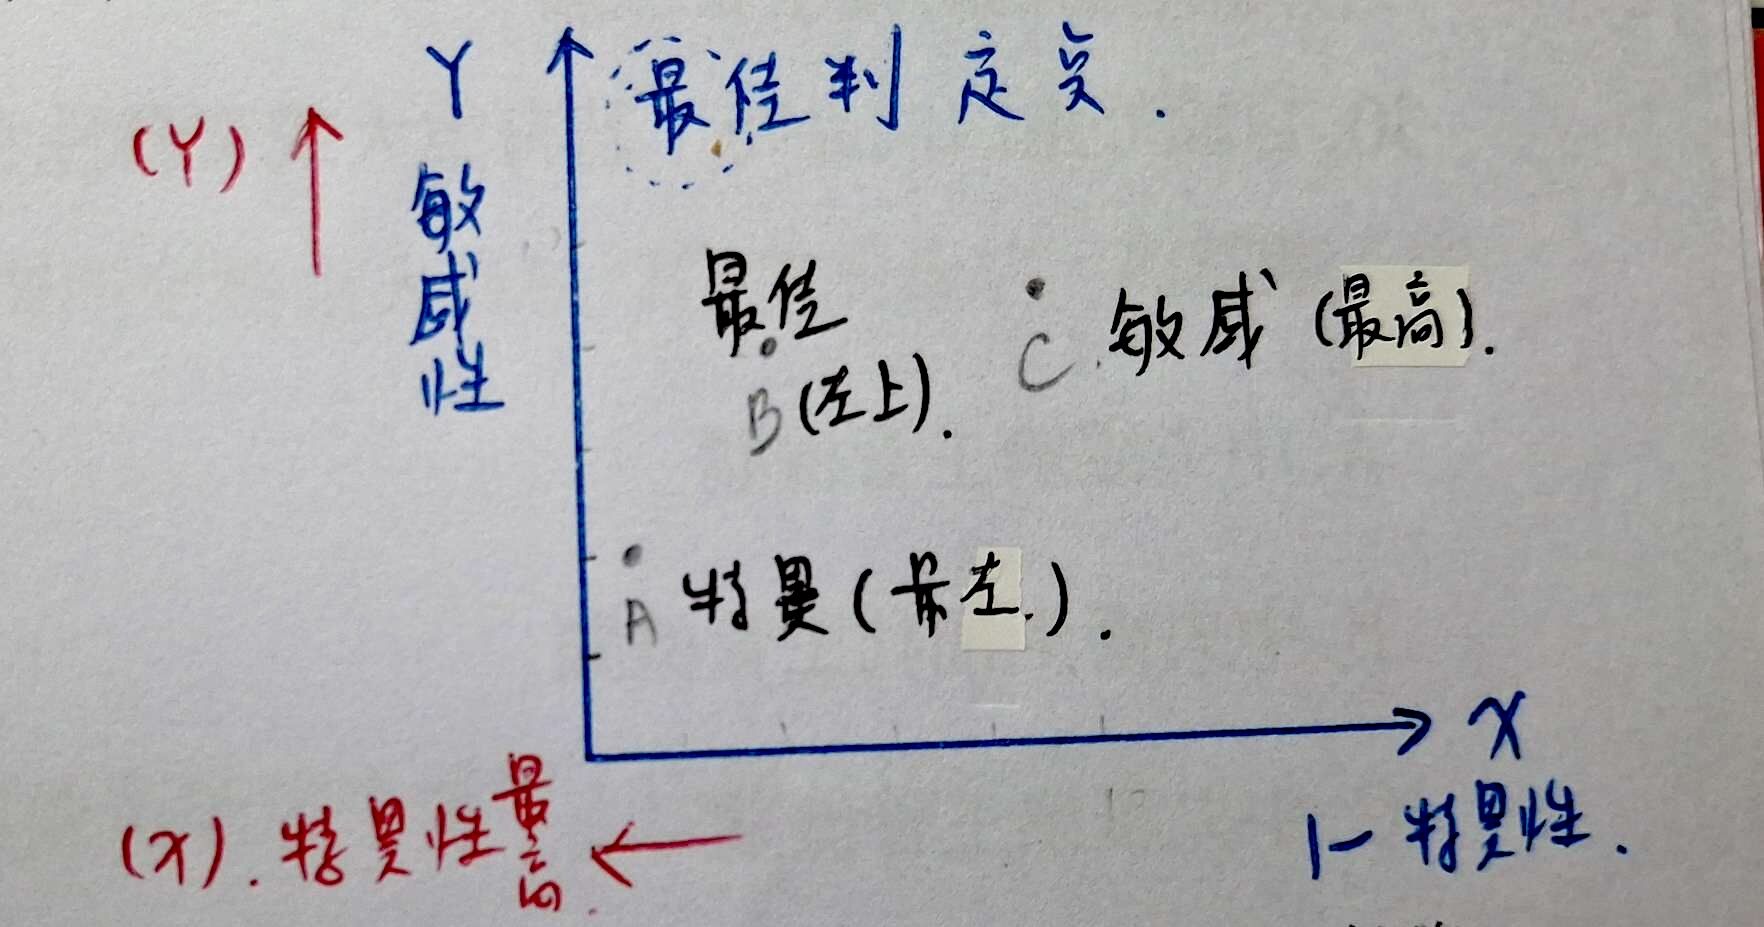 Y 最佳判定点.
(Y)
敏感性
最佳
C 敏感 (最高).
B (左上).
A 特異 (最左.).
X
1-特異性.
(x). 特異性最高.